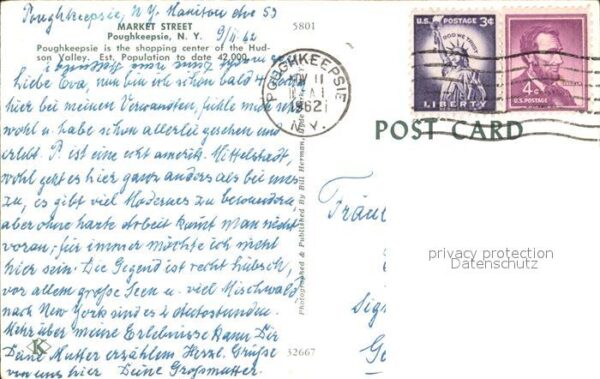 Poughkeepsie, N.Y. Manison Ave 53
9/11 62
MARKET STREET
Poughkeepsie, N. Y.
5801
Poughkeepsie is the shopping center of the Hud-
son Valley. Est. Population to date 42,000.
liebe Eva, nun bin ich schon bald 4
hier bei meinen Verwandten, fühle mich
wohl u. habe schon allerlei gesehen und
erlebt. P. ist eine echt amerik. Mittelstadt,
wohl geht es hier ganz anders als bei uns
zu, es gibt viel Modernes zu bewundern
aber ohne harte Arbeit kommt man nicht
voran; für immer möchte ich nicht
hier sein. Die Gegend ist recht hübsch,
vor allem große Seen u. viel Mischwald
nach New York sind es 2 Autostunden.
Mehr über meine Erlebnisse kann Dir
Deine Mutter erzählen. Herzl. Grüße
von uns hier Deine Großmutter.
K
Photographed & Published By Bill Herman,
32667
POUGHKEEPSIE
NOV 11
1962
N.Y.
U.S. POSTAGE 3¢
IN GOD WE TRUST
LIBERTY
4¢
U.S. POSTAGE
POST CARD
privacy protection
Datenschutz